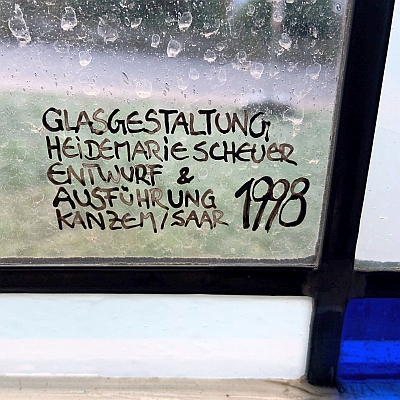 GLASGESTALTUNG
HEIDEMARIE SCHEUER
ENTWURF &
AUSFÜHRUNG 1998
KANZEM/SAAR